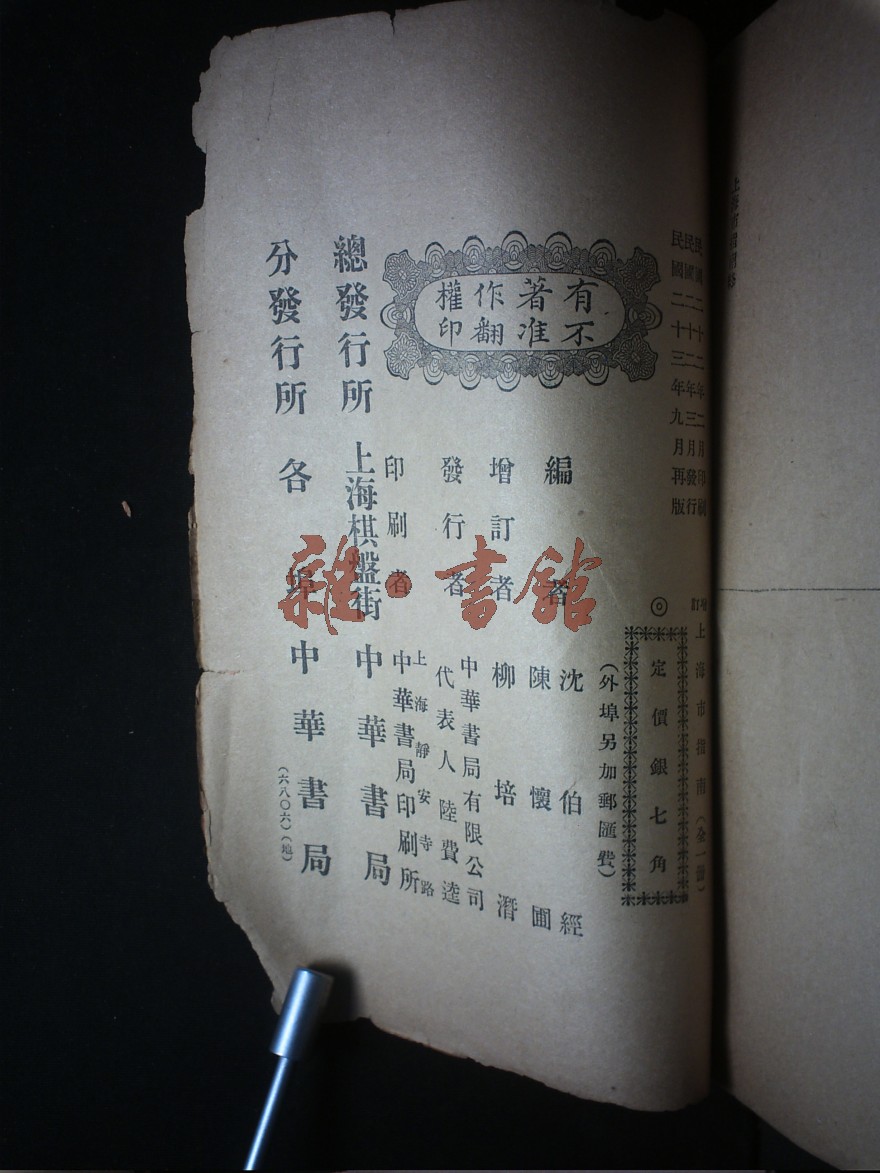 民國二十二年二月印刷
民國二十二年三月發行
民國二十三年九月再版
有著作權
不准翻印
增訂上海市指南（全一冊）
◎定價銀七角
（外埠另加郵匯費）
編者 沈伯經
陳懷圃
增訂者 柳培潛
發行者 中華書局有限公司
代表人陸費逵
印刷者 上海靜安寺路
中華書局印刷所
總發行所 上海棋盤街 中華書局
分發行所 各埠 中華書局
（六八〇六）（地）
雜·書館